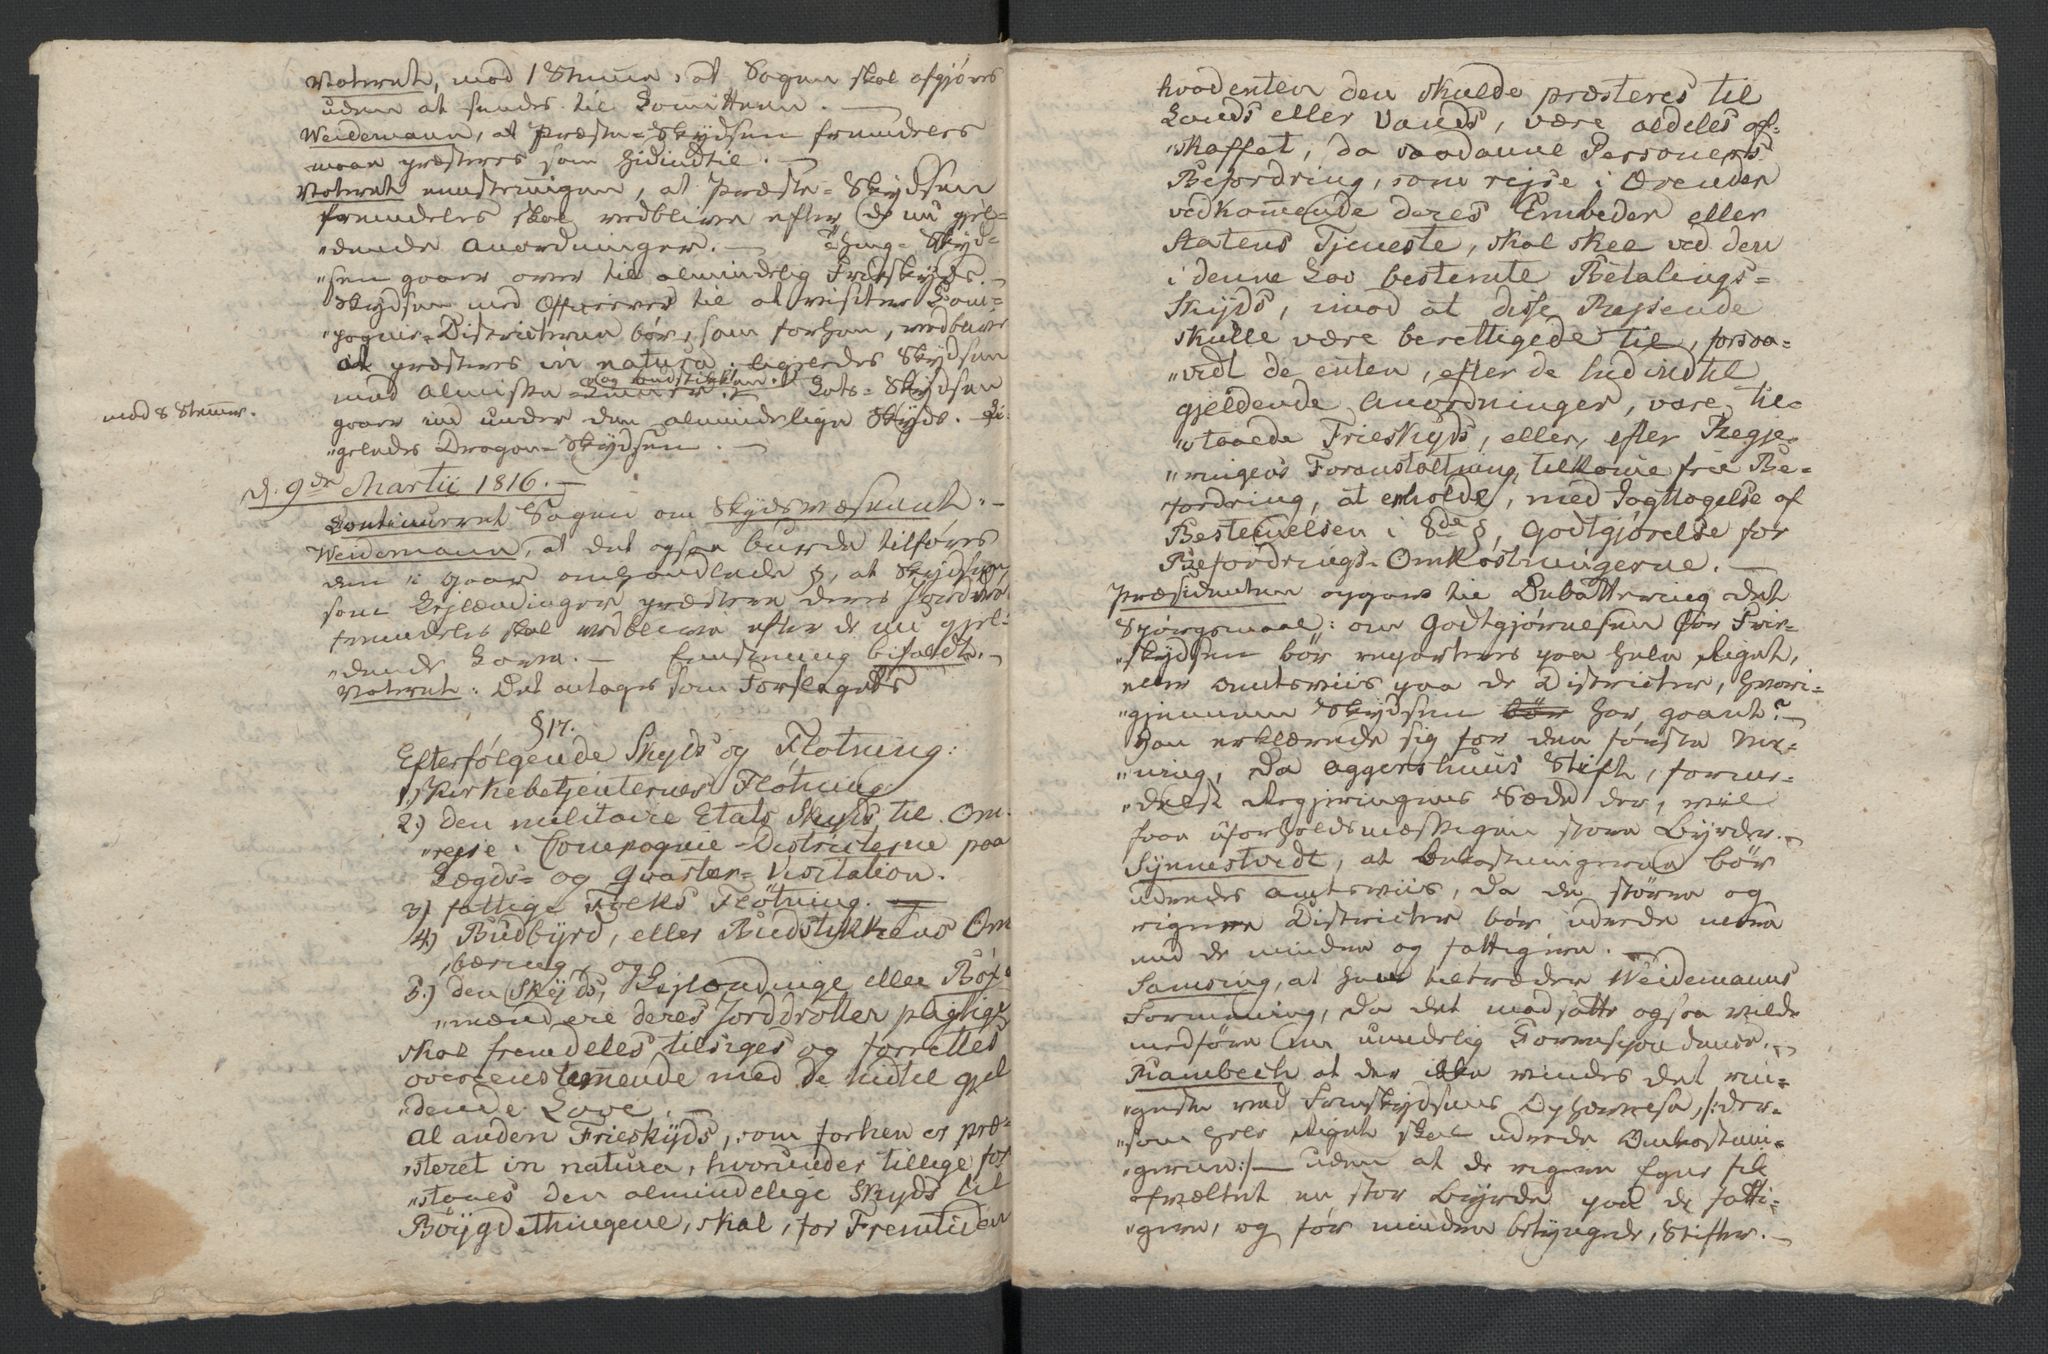 Voteret, mod 1 Stemme, at Sagen skal afgjøres
uden at sendes til Comitteen. —
Weidemann, at Præste-Skydsen fremdeles
maae præsteres som hidindtil. —
Voteret eenstemmigen, at Præste-Skydsen
fremdeles skal vedblive efter de nu gjel-
„dende Anordninger. — Thing-Skyd-
„sen gaaer over til almindelig Frieskyds. —
Skydsen med Officerer til at visitere Com-
„pagnie-Districterne bør, som forhen, vedblive
at præsteres in natura; ligeledes Skydsen
og Budstikken.
med Almisse-Lemmer. — Lots-Skydsen
mod 8 Stemmer.
gaaer ind under den almindelige Skyds. Li-
„geledes Dragon-Skydsen. —
d. 9de Martii 1816. —
Continueret Sagen om Skydsvæsenet: —
Weidemann, at det ogsaa burde tilføres
den i Gaar omhandlede §, at Skydsen,
som Lejlændinger præstere deres Jorddrot
fremdeles skal vedblive efter de nu gjel-
„dende Love. — Eenstemmig bifaldt. —
Voteret: Det antages som Forslagets
§17.
Efterfølgende Skyds og Fløtning:
1.) Kirkebetjenternes Fløtning
2.) den militaire Etats Skyds til Om-
„rejse i Compagnie-Districterne paa
Lægds- og Qvarteer-Visitation.
3) fattige Folks Fløtning. —
4) Budbyrd, eller Budstikkens Om
„bæring, og
5.) den Skyds, Lejlændinge eller Böx-
„mænd ere deres Jorddrotter pligtige
skal fremdeles tilsiges og forrettes
overeenstemmende med de hidtil gjel
„dende Love. —
Al anden Frieskyds, som forhen er præ-
„steret in natura, hvorunder tillige for
„staaes den almindelige Skyds til
Böygdethingene, skal, for Fremtiden
hvadenten den skulde præsteres til
Lands eller Vands, være aldeles af-
„skaffet, da saadanne Personers
Befordring, som rejse i Ærender
vedkommende deres Embeder eller
Statens Tjeneste, skal skee ved den
i denne Lov bestemte Betalings-
Skyds, imod at disse Rejsende
skulle være berettigede til, forsaa-
„vidt de enten, efter de hidindtil
gjeldende Anordninger, vare til-
„staaede Frieskyds, eller, efter Regje-
„ringens Foranstaltning, tilkomme frie Be-
fordring, at erholde, med Jagttagelse af
Bestemmelsen i 8de §, Godtgjörelse for
Befordrings-Omkostningerne. —
Præsidenten opgav til Debattering det
Spörgsmaal: om Godtgjørelsen for Frie-
„skydsen bör reparteres paa hele Riget,
eller Amtsviis paa de Districter, hvori-
„gjennem Skydsen bør har gaaet? —
Han erklærede sig for den første Me-
„ning, da Aggershuus Stift, formed-
„delst Regjeringens Sæde der, vil
faae uforholdsmæssigen store Byrder. —
Synnestvedt, at Omkostningerne bör
udredes Amtsviis, da de störra og
rigere Districter bör udrede mere
end de mindre og fattigere. —
Samsing, at han tiltræder Weidemanns
Formening, da det modsatte ogsaa vilde
medføre en uendelig Correspondance. —
Rambech at der ikke vindes det rin-
„geste ved Frieskydsens Ophævelse, /:der-
„som hele Riget skal udrede Omkostnin-
„gerne:/ — uden at de rigere Egne fik
afvæltet en stor Byrde paa de fatti-
„gere, og før mindre betyngede, Stifter. —